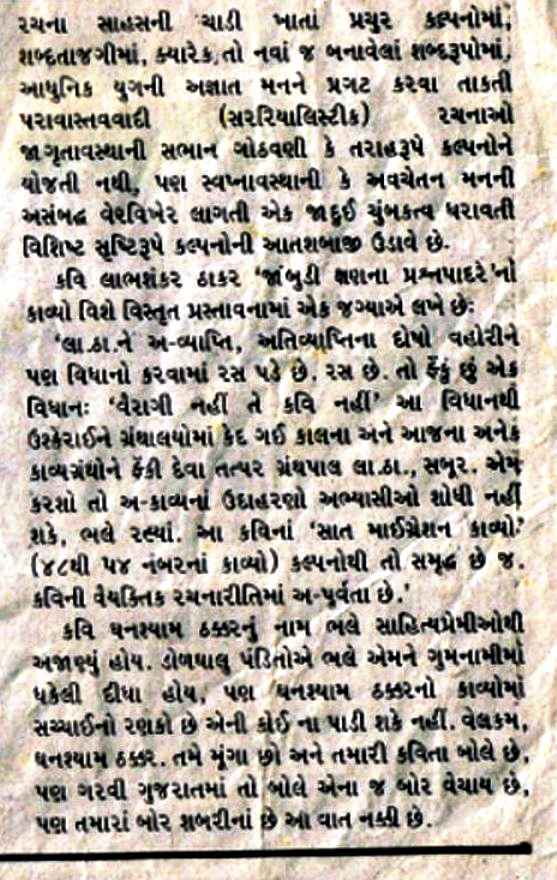 રચના સાહસની ચાડી ખાતાં પ્રચુર કલ્પનોમાં,
શબ્દતાજગીમાં, ક્યારેક તો નવાં જ બનાવેલાં શબ્દરૂપોમાં,
આધુનિક યુગની અજ્ઞાત મનને પ્રગટ કરવા તાકતી
પરાવાસ્તવવાદી (સરરિયાલિસ્ટીક) રચનાઓ
જાગૃતાવસ્થાની સભાન ગોઠવણી કે તરાહરૂપે કલ્પનોને
યોજતી નથી, પણ સ્વપ્નાવસ્થાની કે અવચેતન મનની
અસંબદ્ધ વેરવિખેર લાગતી એક જાદુઈ ચુંબકત્વ ધરાવતી
વિશિષ્ટ સૃષ્ટિરૂપે કલ્પનોની આતશબાજી ઉડાવે છે.
કવિ લાભશંકર ઠાકર ‘જાંબુડી ક્ષણના પ્રશ્નપાદરે’નો
કાવ્યો વિશે વિસ્તૃત પ્રસ્તાવનામાં એક જગ્યાએ લખે છેઃ
‘લા.ઠા.ને અ-વ્યાપ્તિ, અતિવ્યાપ્તિના દોષો વહોરીને
પણ વિધાનો કરવામાં રસ પડે છે. રસ છે. તો ફેંકું છું એક
વિધાનઃ ‘વૈરાગી નહીં તે કવિ નહીં’ આ વિધાનથી
ઉશ્કેરાઈને ગ્રંથાલયોમાં કેદ ગઈ કાલના અને આજના અનેક
કાવ્યગ્રંથોને ફેંકી દેવા તત્પર ગ્રંથપાલ લા.ઠા., સબૂર. એમ
કરશો તો અ-કાવ્યનાં ઉદાહરણો અભ્યાસીઓ શોધી નહીં
શકે, ભલે રહ્યાં. આ કવિનાં ‘સાત માઈગ્રેશન કાવ્યો’
(૪૮થી ૫૪ નંબરનાં કાવ્યો) કલ્પનોથી તો સમૃદ્ધ છે જ.
કવિની વૈયક્તિક રચનારીતિમાં અ-પૂર્વતા છે.’
કવિ ઘનશ્યામ ઠક્કરનું નામ ભલે સાહિત્યપ્રેમીઓથી
અજાણ્યું હોય. ડોળઘાલુ પંડિતોએ ભલે એમને ગુમનામીમાં
ધકેલી દીધા હોય, પણ ઘનશ્યામ ઠક્કરનો કાવ્યોમાં
સચ્ચાઈનો રણકો છે એની કોઈ ના પાડી શકે નહીં. વેલકમ,
ઘનશ્યામ ઠક્કર. તમે મૂંગા છો અને તમારી કવિતા બોલે છે,
પણ ગરવી ગુજરાતમાં તો બોલે એના જ બોર વેચાય છે,
પણ તમારાં બોર શબરીનાં છે આ વાત નક્કી છે.